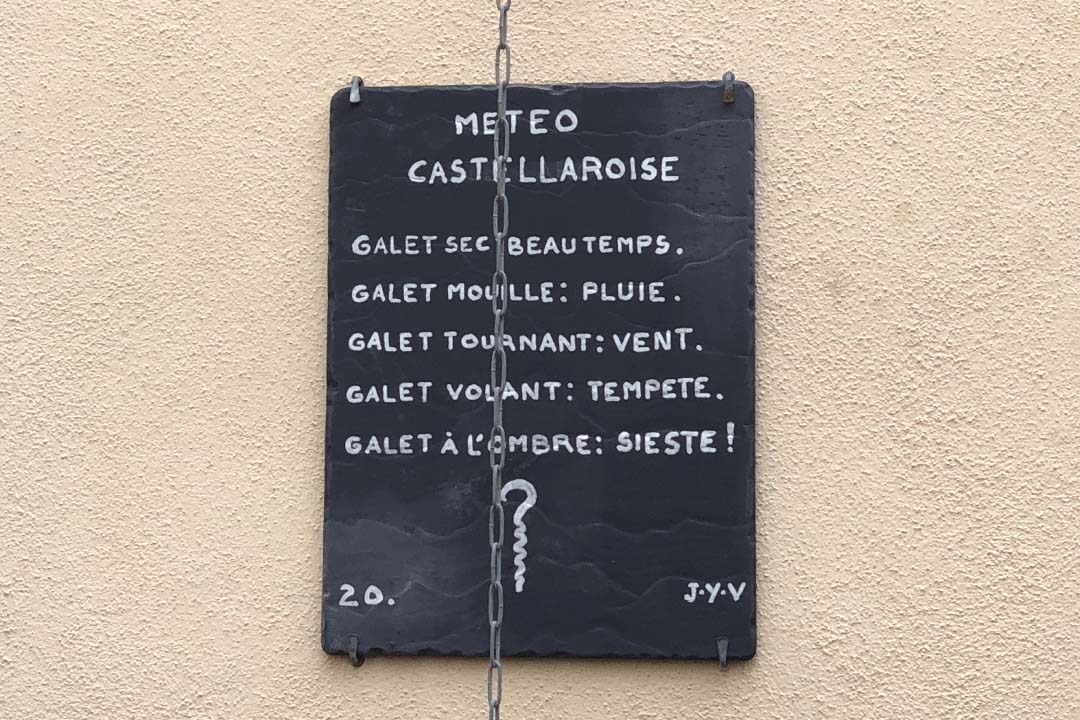 METEO
CASTELLAROISE
GALET SEC BEAU TEMPS.
GALET MOUILLE: PLUIE.
GALET TOURNANT: VENT.
GALET VOLANT: TEMPETE.
GALET À L'OMBRE: SIESTE!
20.
J.Y.V